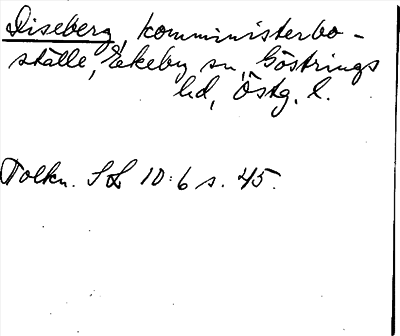 Diseberg, komministerbo-
ställe, Ekeby sn, Göstrings
hd, Östg. l.
Tolkn. SL 10:6 s. 45.